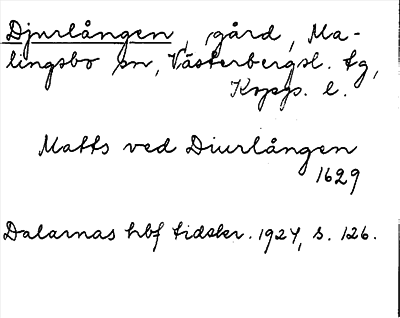 Djurlången, gård, Ma-
lingsbo sn, Västerbergsl. tg,
Kopps. l.
Matts ved Diurlången
1629
Dalarnas hbf tidskr. 1927, s. 126.